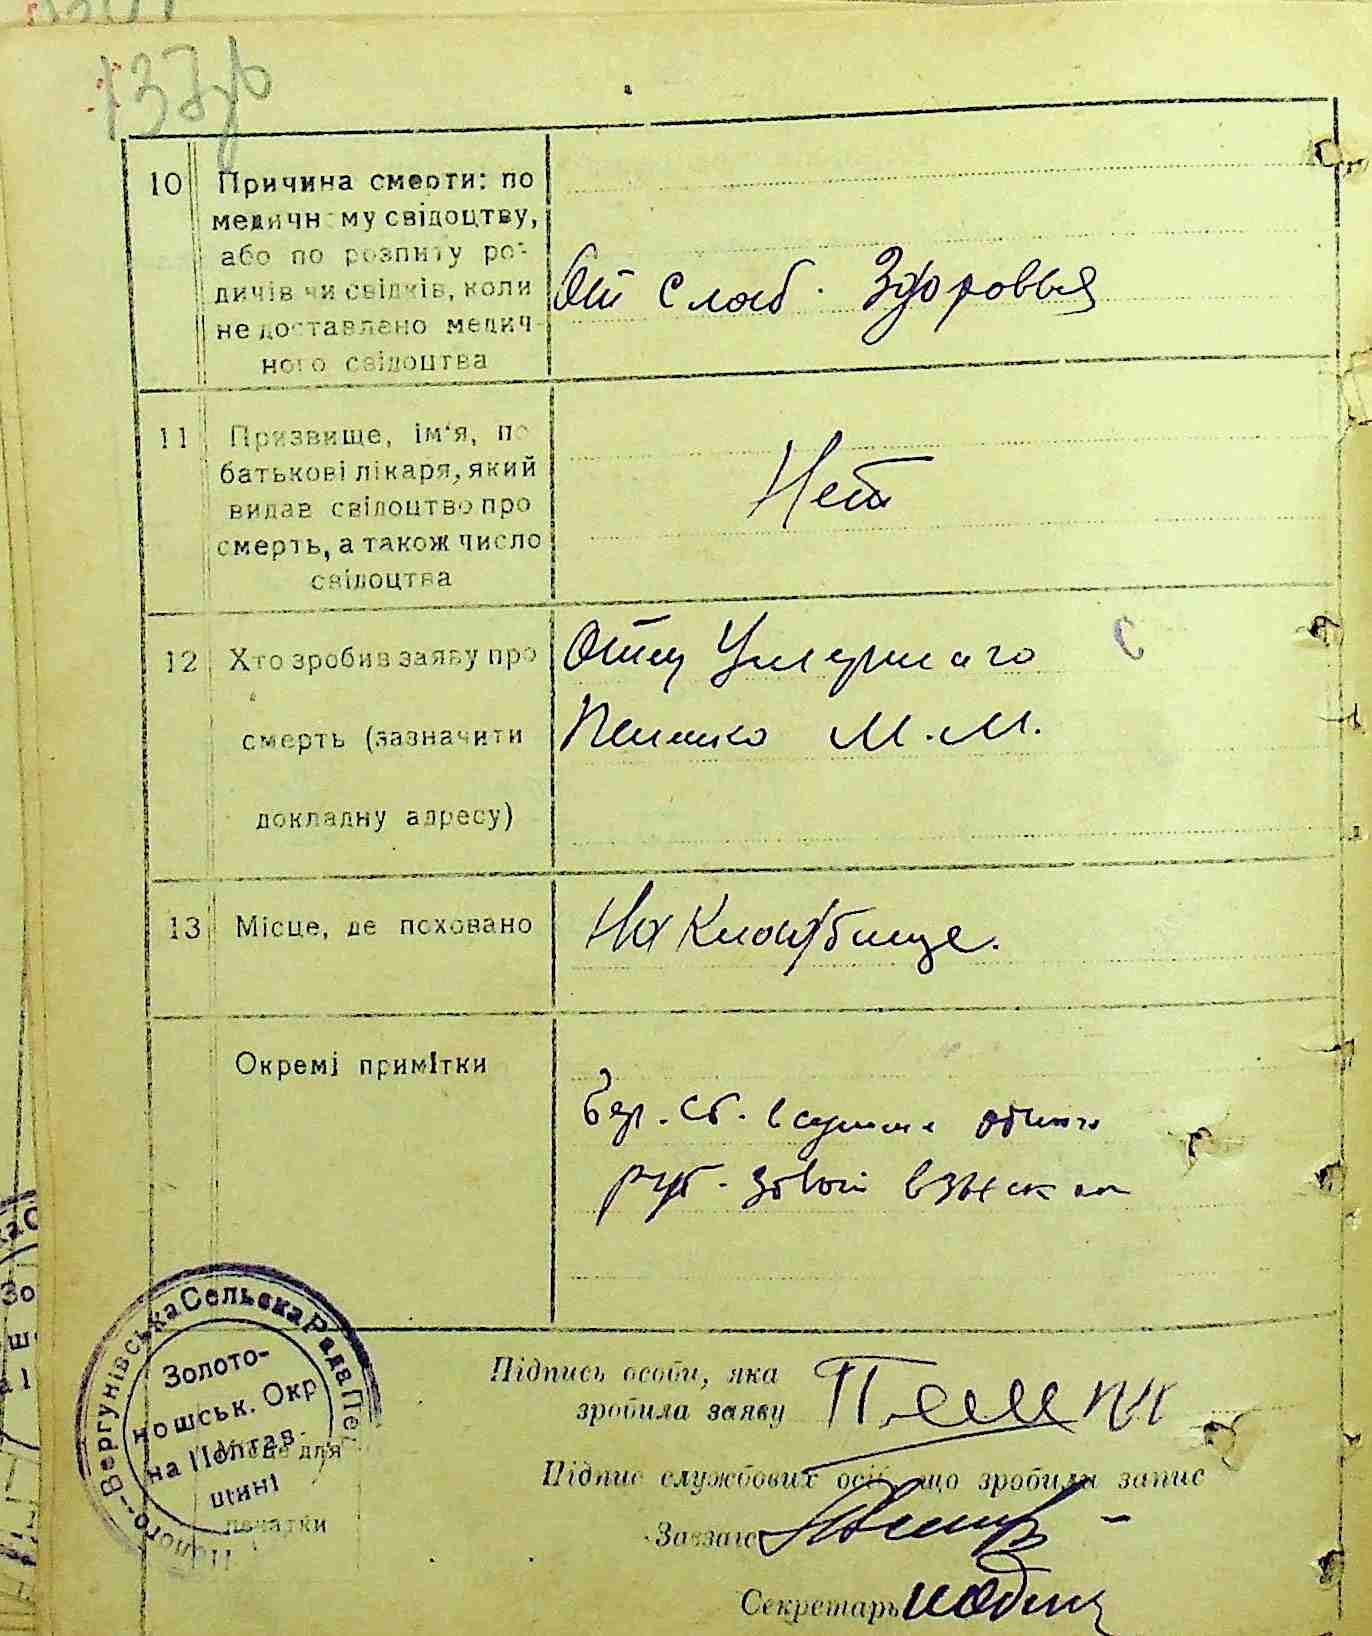 137
10 Причина смерти: по
медичному свідоцтву,
або по розпиту ро-
дичів чи свідків, коли
не доставлено медич-
ного свідоцтва
От слаб. Здоровья
11 Призвище, ім'я, по
батькові лікаря, який
видав свідоцтво про
смерть, а також число
свідоцтва
Нет
12 Хто зробив заяву про
смерть (зазначити
докладну адресу)
Отец Умершаго
М. М.
13 Місце, де поховано
На Кладбище.
Окремі примітки
сб. в сумме одного
руб. взыскан
Золото-
ношськ. Окр
на Полтав-
щині
Вергунівська Сельска Рада
Місце для
печатки
Підпись особи, яка
зробила заяву
Підпис службових осіб що зробили запис
Завзагс
Секретарь